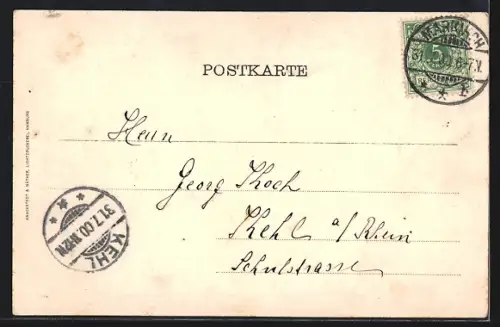 MARKIRCH
31.7.00 6-7.V.
5
POSTKARTE
Herrn
Georg Koch
Kehl a/Rhein
Schulstrasse
KEHL
31.7.00
KNACKSTEDT & NÄTHER, LICHTDRUCKEREI, HAMBURG